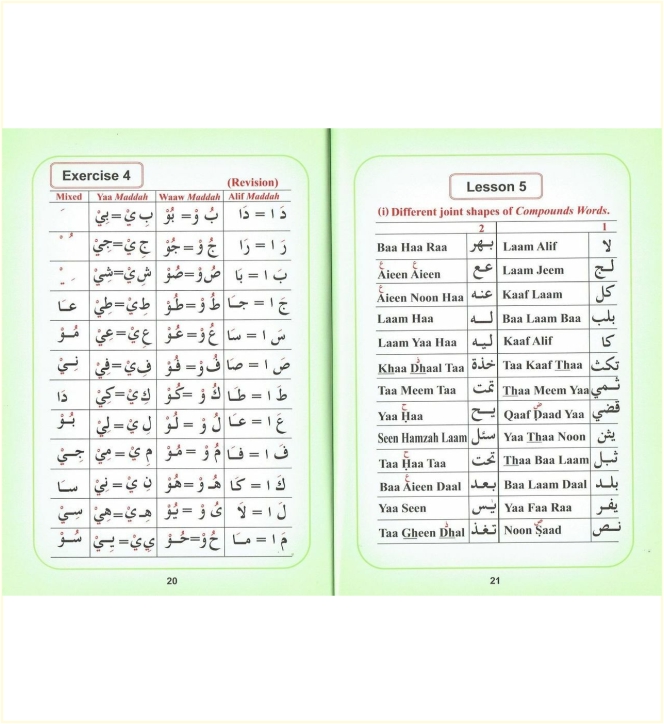 Exercise 4
(Revision)
Mixed Yaa Maddah Waaw Maddah Alif Maddah
دَ ا = دَا بُ وْ = بُوْ بِ يْ = بِيْ
رَ ا = رَا جُ وْ = جُوْ جِ يْ = جِيْ
بَ ا = بَا صُ وْ = صُوْ شِ يْ = شِيْ
جَ ا = جَا طُ وْ = طُوْ طِ يْ = طِيْ عَا
سَ ا = سَا عُ وْ = عُوْ عِ يْ = عِيْ مُوْ
صَ ا = صَا فُ وْ = فُوْ فِ يْ = فِيْ نِيْ
طَ ا = طَا كُ وْ = كُوْ كِ يْ = كِيْ دَا
عَ ا = عَا لُ وْ = لُوْ لِ يْ = لِيْ بُوْ
فَ ا = فَا مُ وْ = مُوْ مِ يْ = مِيْ جِيْ
كَ ا = كَا هُ وْ = هُوْ نِ يْ = نِيْ سَا
لَ ا = لَا يُ وْ = يُوْ هِ يْ = هِيْ سِيْ
مَ ا = مَا حُ وْ = حُوْ يِ يْ = يِيْ سُوْ
20
Lesson 5
(i) Different joint shapes of Compounds Words.
2 1
Baa Haa Raa بهر Laam Alif لا
Aieen Aieen عع Laam Jeem لج
Aieen Noon Haa عنه Kaaf Laam كل
Laam Haa له Baa Laam Baa بلب
Laam Yaa Haa ليه Kaaf Alif كا
Khaa Dhaal Taa خذة Taa Kaaf Thaa تكث
Taa Meem Taa تمت Thaa Meem Yaa ثمي
Yaa Ḥaa يح Qaaf Ḍaad Yaa قضي
Seen Hamzah Laam سئل Yaa Thaa Noon يثن
Taa Ḥaa Taa تحت Thaa Baa Laam ثبل
Baa Aieen Daal بعد Baa Laam Daal بلد
Yaa Seen يس Yaa Faa Raa يفر
Taa Gheen Dhal تغذ Noon Ṣaad نص
21